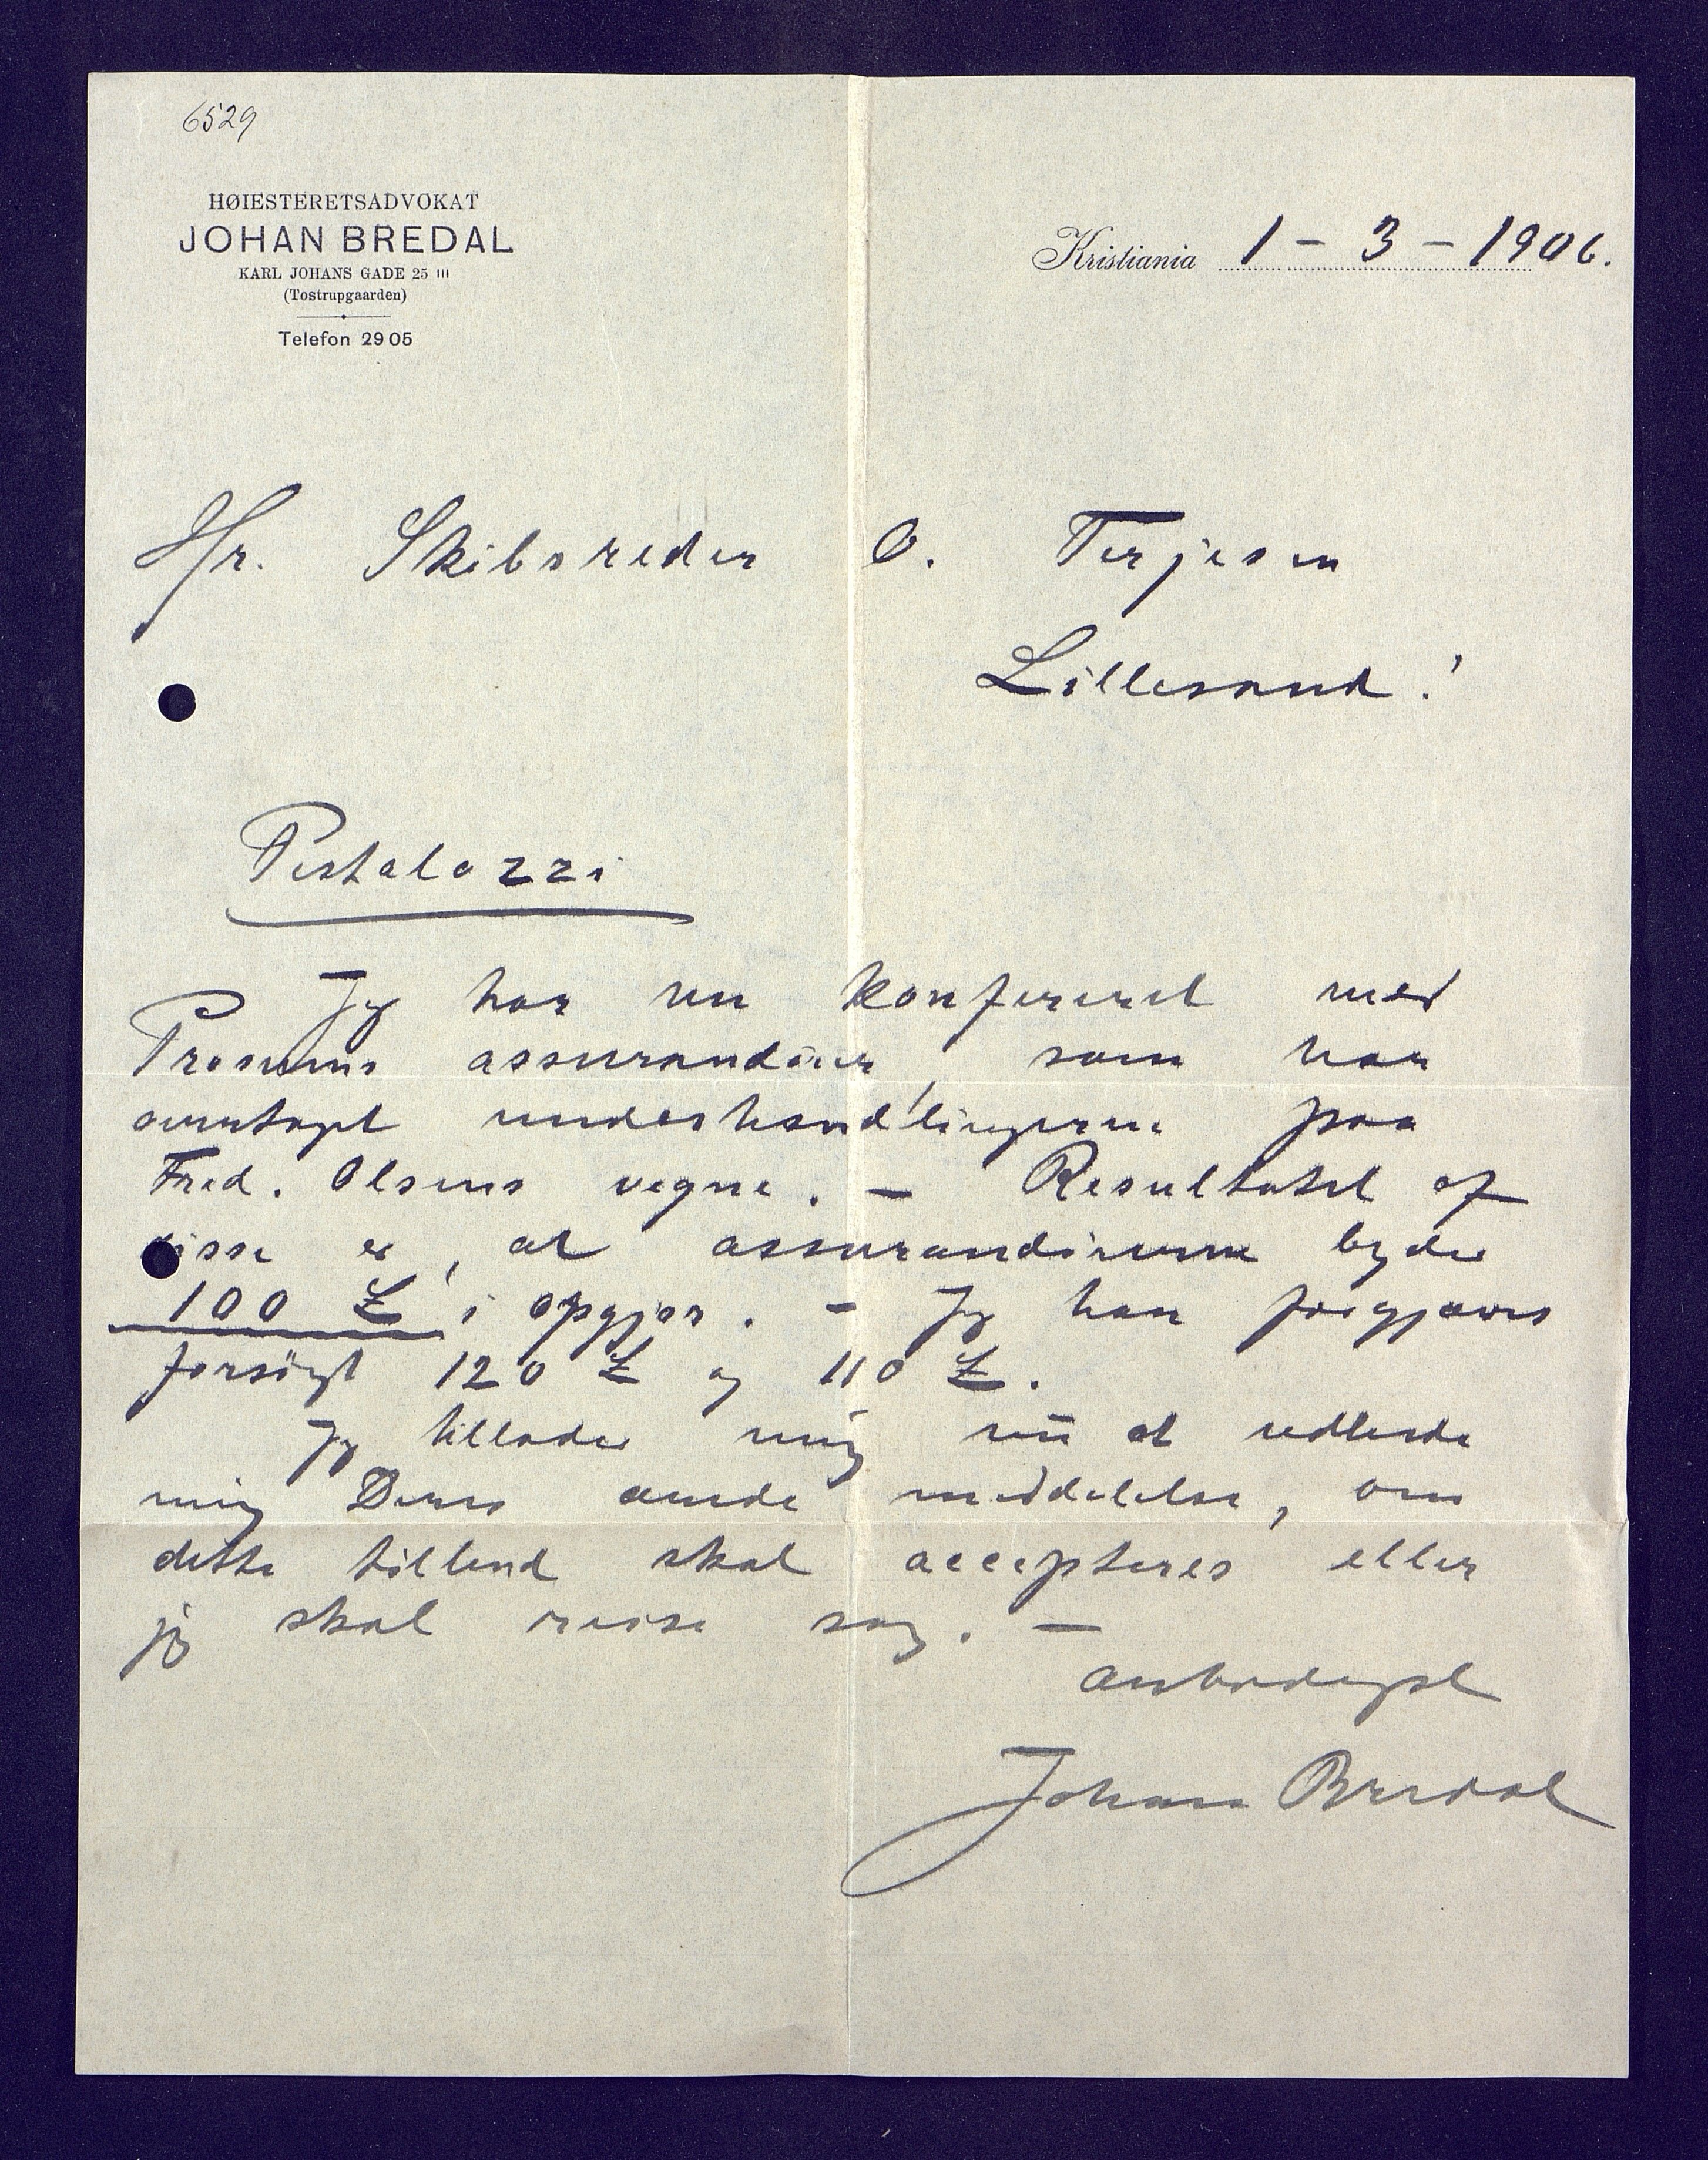 6529
HØIESTERETSADVOKAT
JOHAN BREDAL
KARL JOHANS GADE 25 III
(Tostrupgaarden)
Telefon 2905
Kristiania 1 - 3 - 1906.
Hr. Skibsreder O. Terjesen
Lillesand!
Pestalozzi
Jeg har nu konfereret med
assurandører, som har
overtaget underhandlingerne paa
Fred. Olsens vegne. - Resultatet af
disse er, at assurandørerne byder
100 £ i opgjør. - Jeg har forgjæves
forsøgt 120 £ og 110 £.
Jeg tillader mig nu at udbede
mig Deres ærede meddelelse, om
dette tilbud skal accepteres eller
jeg skal reise sag. -
Ærbødigst
Johan Bredal